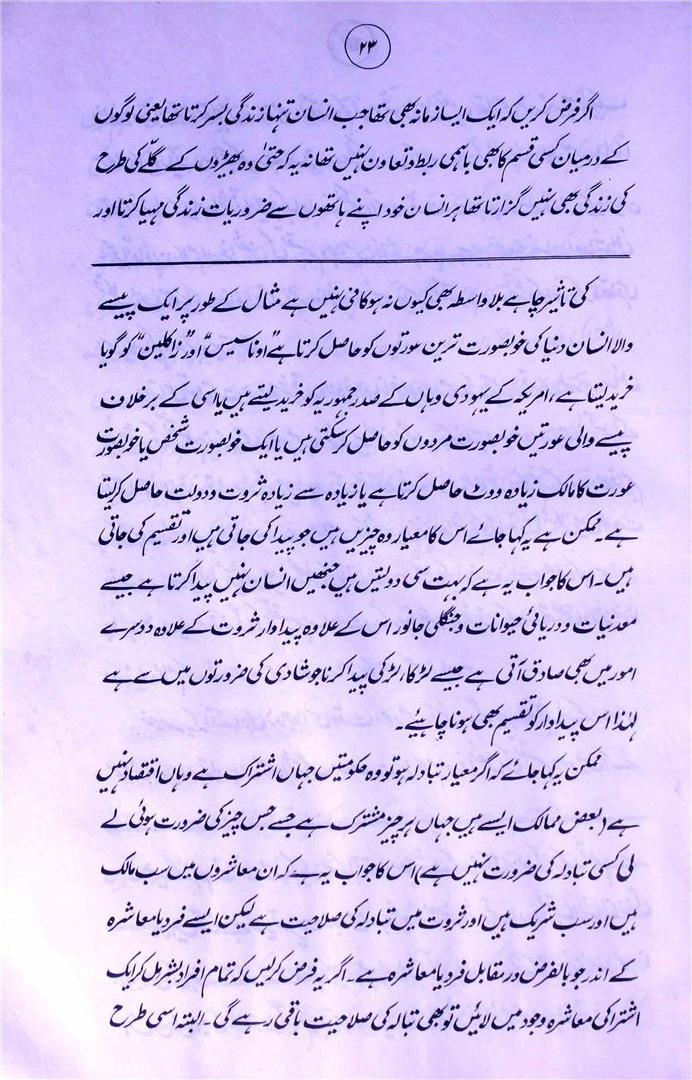 ۲۳
اگر فرض کریں کہ ایک ایسا زمانہ بھی تھا جب انسان تنہا زندگی بسر کرتا تھا یعنی لوگوں
کے درمیان کسی قسم کا بھی باہمی ربط و تعاون نہیں تھا نہ یہ کہ حتیٰ وہ بھیڑوں کے گلّے کی طرح
کی زندگی بھی نہیں گزارتا تھا ہر انسان خود اپنے ہاتھوں سے ضروریات زندگی مہیا کرتا اور
کی تاثیر چاہے بلا واسطہ بھی کیوں نہ ہو کافی نہیں ہے مثال کے طور پر ایک پیسے
والا انسان دنیا کی خوبصورت ترین عورتوں کو حاصل کرتا ہے "اوناسیس" اور "زاکلین" کو گویا
خرید لیتا ہے، امریکہ کے یہودی وہاں کے صدر جمہوریہ کو خرید لیتے ہیں یا اسی کے برخلاف
پیسے والی عورتیں خوبصورت مردوں کو حاصل کر سکتی ہیں یا ایک خوبصورت شخص یا خوبصورت
عورت کا مالک زیادہ ووٹ حاصل کرتا ہے یا زیادہ سے زیادہ ثروت و دولت حاصل کر لیتا
ہے۔ ممکن ہے یہ کہا جائے اس کا معیار وہ چیزیں ہیں جو پیدا کی جاتی ہیں اور تقسیم کی جاتی
ہیں۔ اس کا جواب یہ ہے کہ بہت سی دولتیں ہیں جنھیں انسان نہیں پیدا کرتا ہے جیسے
معدنیات و دریائی حیوانات و جنگلی جانور اس کے علاوہ پیداوار ثروت کے علاوہ دوسرے
امور میں بھی صادق آتی ہے جیسے لڑکا، لڑکی پیدا کرنا جو شادی کی ضرورتوں میں سے ہے
لہٰذا اس پیداوار کو تقسیم بھی ہونا چاہیئے۔
ممکن یہ کہا جائے کہ اگر معیار تبادلہ ہو تو وہ حکومتیں جہاں اشتراک ہے وہاں اقتصاد نہیں
ہے (بعض ممالک ایسے ہیں جہاں ہر چیز مشترک ہے جسے جس چیز کی ضرورت ہوئی لے
لی کسی تبادلہ کی ضرورت نہیں ہے) اس کا جواب یہ ہے کہ ان معاشروں میں سب مالک
ہیں اور سب شریک ہیں اور ثروت میں تبادلہ کی صلاحیت ہے لیکن ایسے فرد یا معاشرہ
کے اندر جو بالفرض در مقابل فرد یا معاشرہ ہے۔ اگر یہ فرض کر لیں کہ تمام افراد بشر مل کر ایک
اشتراکی معاشرہ وجود میں لائیں تو بھی تبالہ کی صلاحیت باقی رہے گی۔ البتہ اسی طرح